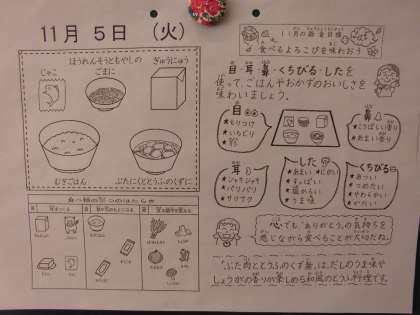 11月 5日 (火)
ほうれんそうともやしの
ごまに
ぎゅうにゅう
じゃこ
むぎごはん
ぶたにくととうふのくずに
11月の給食目標
食べるよろこびを味わおう
目・耳・鼻・くちびる・したを
使って、ごはんやおかずのおいしさを
味わいましょう。
目
★もりつけ
★いろどり
★形
鼻
★こうばしい香り
★あまい香り
耳
★シャキシャキ
★パリパリ
★サクサク
した
★あまい ★にがい
★すっぱい
★塩からい
★うま味
くちびる
★あつい
★つめたい
★やわらかい
★かたい
心でも、ありがとう。の気持ちを
感じながら食べることが大切だね。
「ぶた肉ととうふのくず煮」は、だしのうま味や
しょうがの香りが楽しめる和風のとろみ料理です。